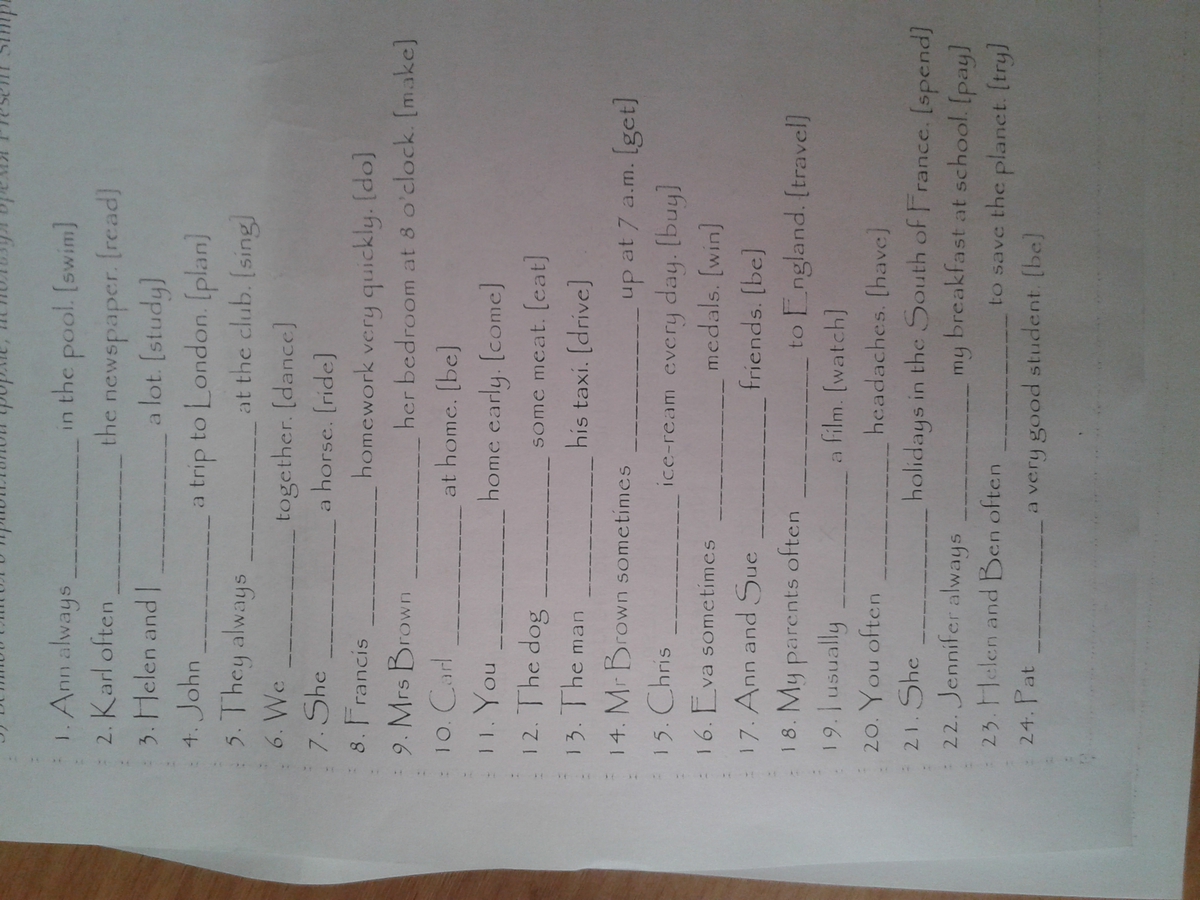 3) Вставьте глагол в правильной форме, используя время Present Simple
1. Ann always __________ in the pool. [swim]
2. Karl often __________ the newspaper. [read]
3. Helen and I __________ a lot. [study]
4. John __________ a trip to London. [plan]
5. They always __________ at the club. [sing]
6. We __________ together. [dance]
7. She __________ a horse. [ride]
8. Francis __________ homework very quickly. [do]
9. Mrs Brown __________ her bedroom at 8 o'clock. [make]
10. Carl __________ at home. [be]
11. You __________ home early. [come]
12. The dog __________ some meat. [eat]
13. The man __________ his taxi. [drive]
14. Mr Brown sometimes __________ up at 7 a.m. [get]
15. Chris __________ ice-ream every day. [buy]
16. Eva sometimes __________ medals. [win]
17. Ann and Sue __________ friends. [be]
18. My parents often __________ to England. [travel]
19. I usually __________ a film. [watch]
20. You often __________ headaches. [have]
21. She __________ holidays in the South of France. [spend]
22. Jennifer always __________ my breakfast at school. [pay]
23. Helen and Ben often __________ to save the planet. [try]
24. Pat __________ a very good student. [be]